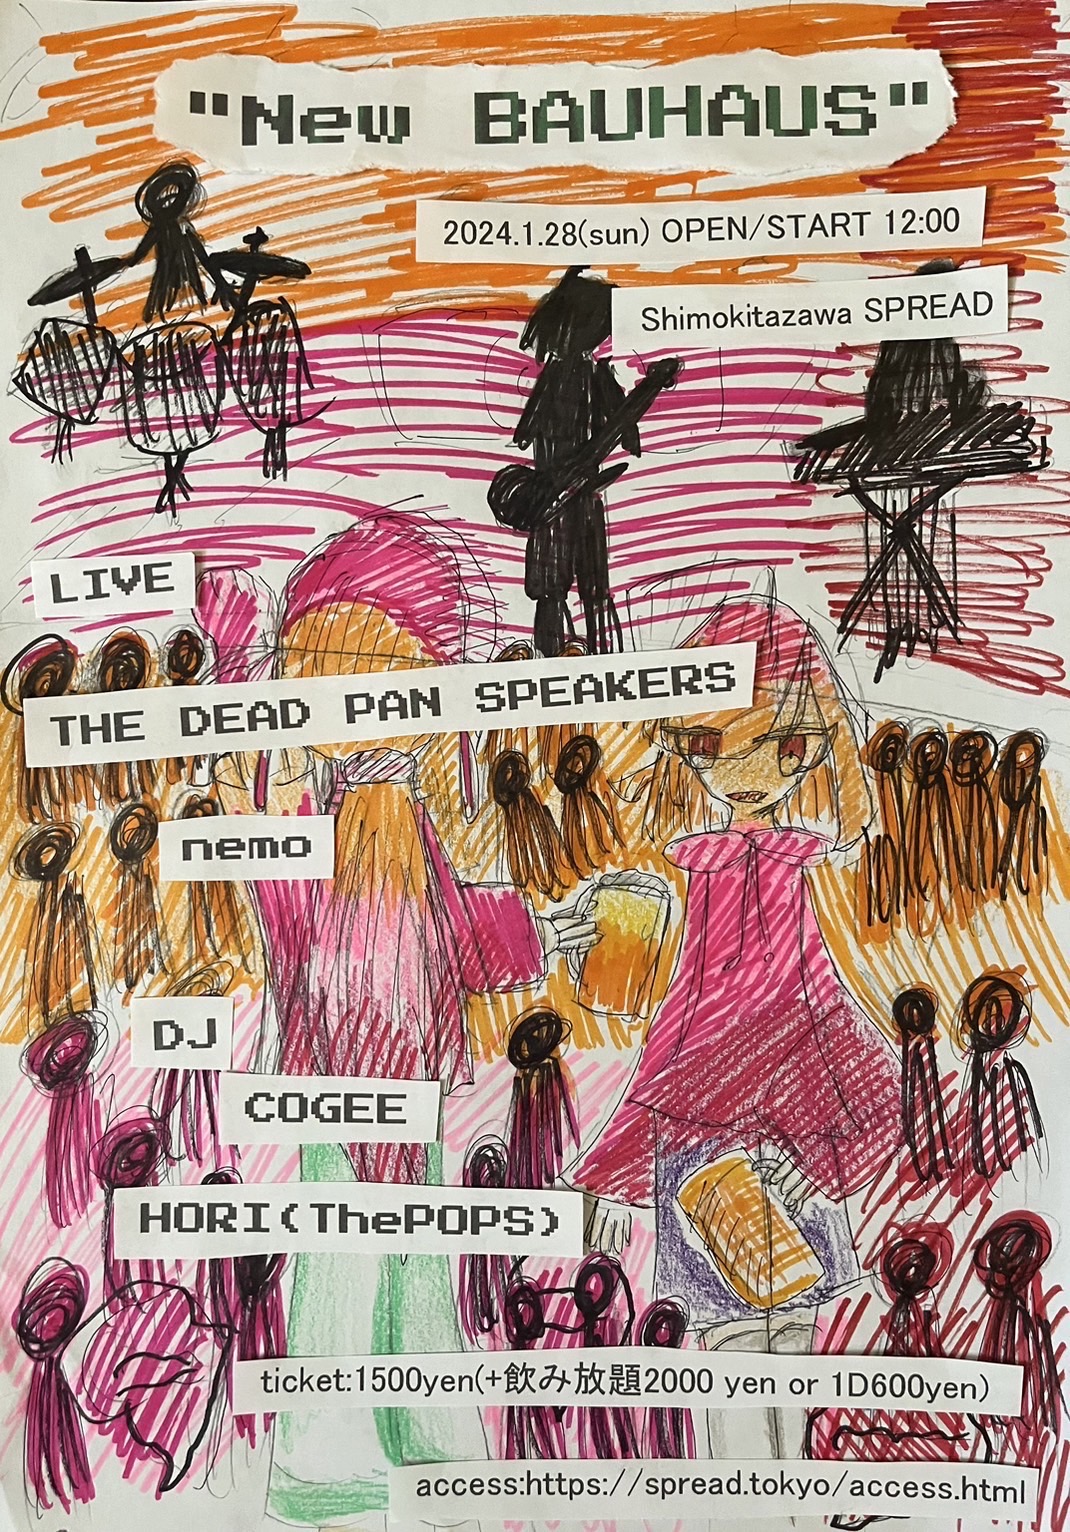 "New BAUHAUS"
2024.1.28(sun) OPEN/START 12:00
Shimokitazawa SPREAD
LIVE
THE DEAD PAN SPEAKERS
nemo
DJ
COGEE
HORI(ThePOPS)
ticket:1500yen(+飲み放題2000 yen or 1D600yen)
access:https://spread.tokyo/access.html